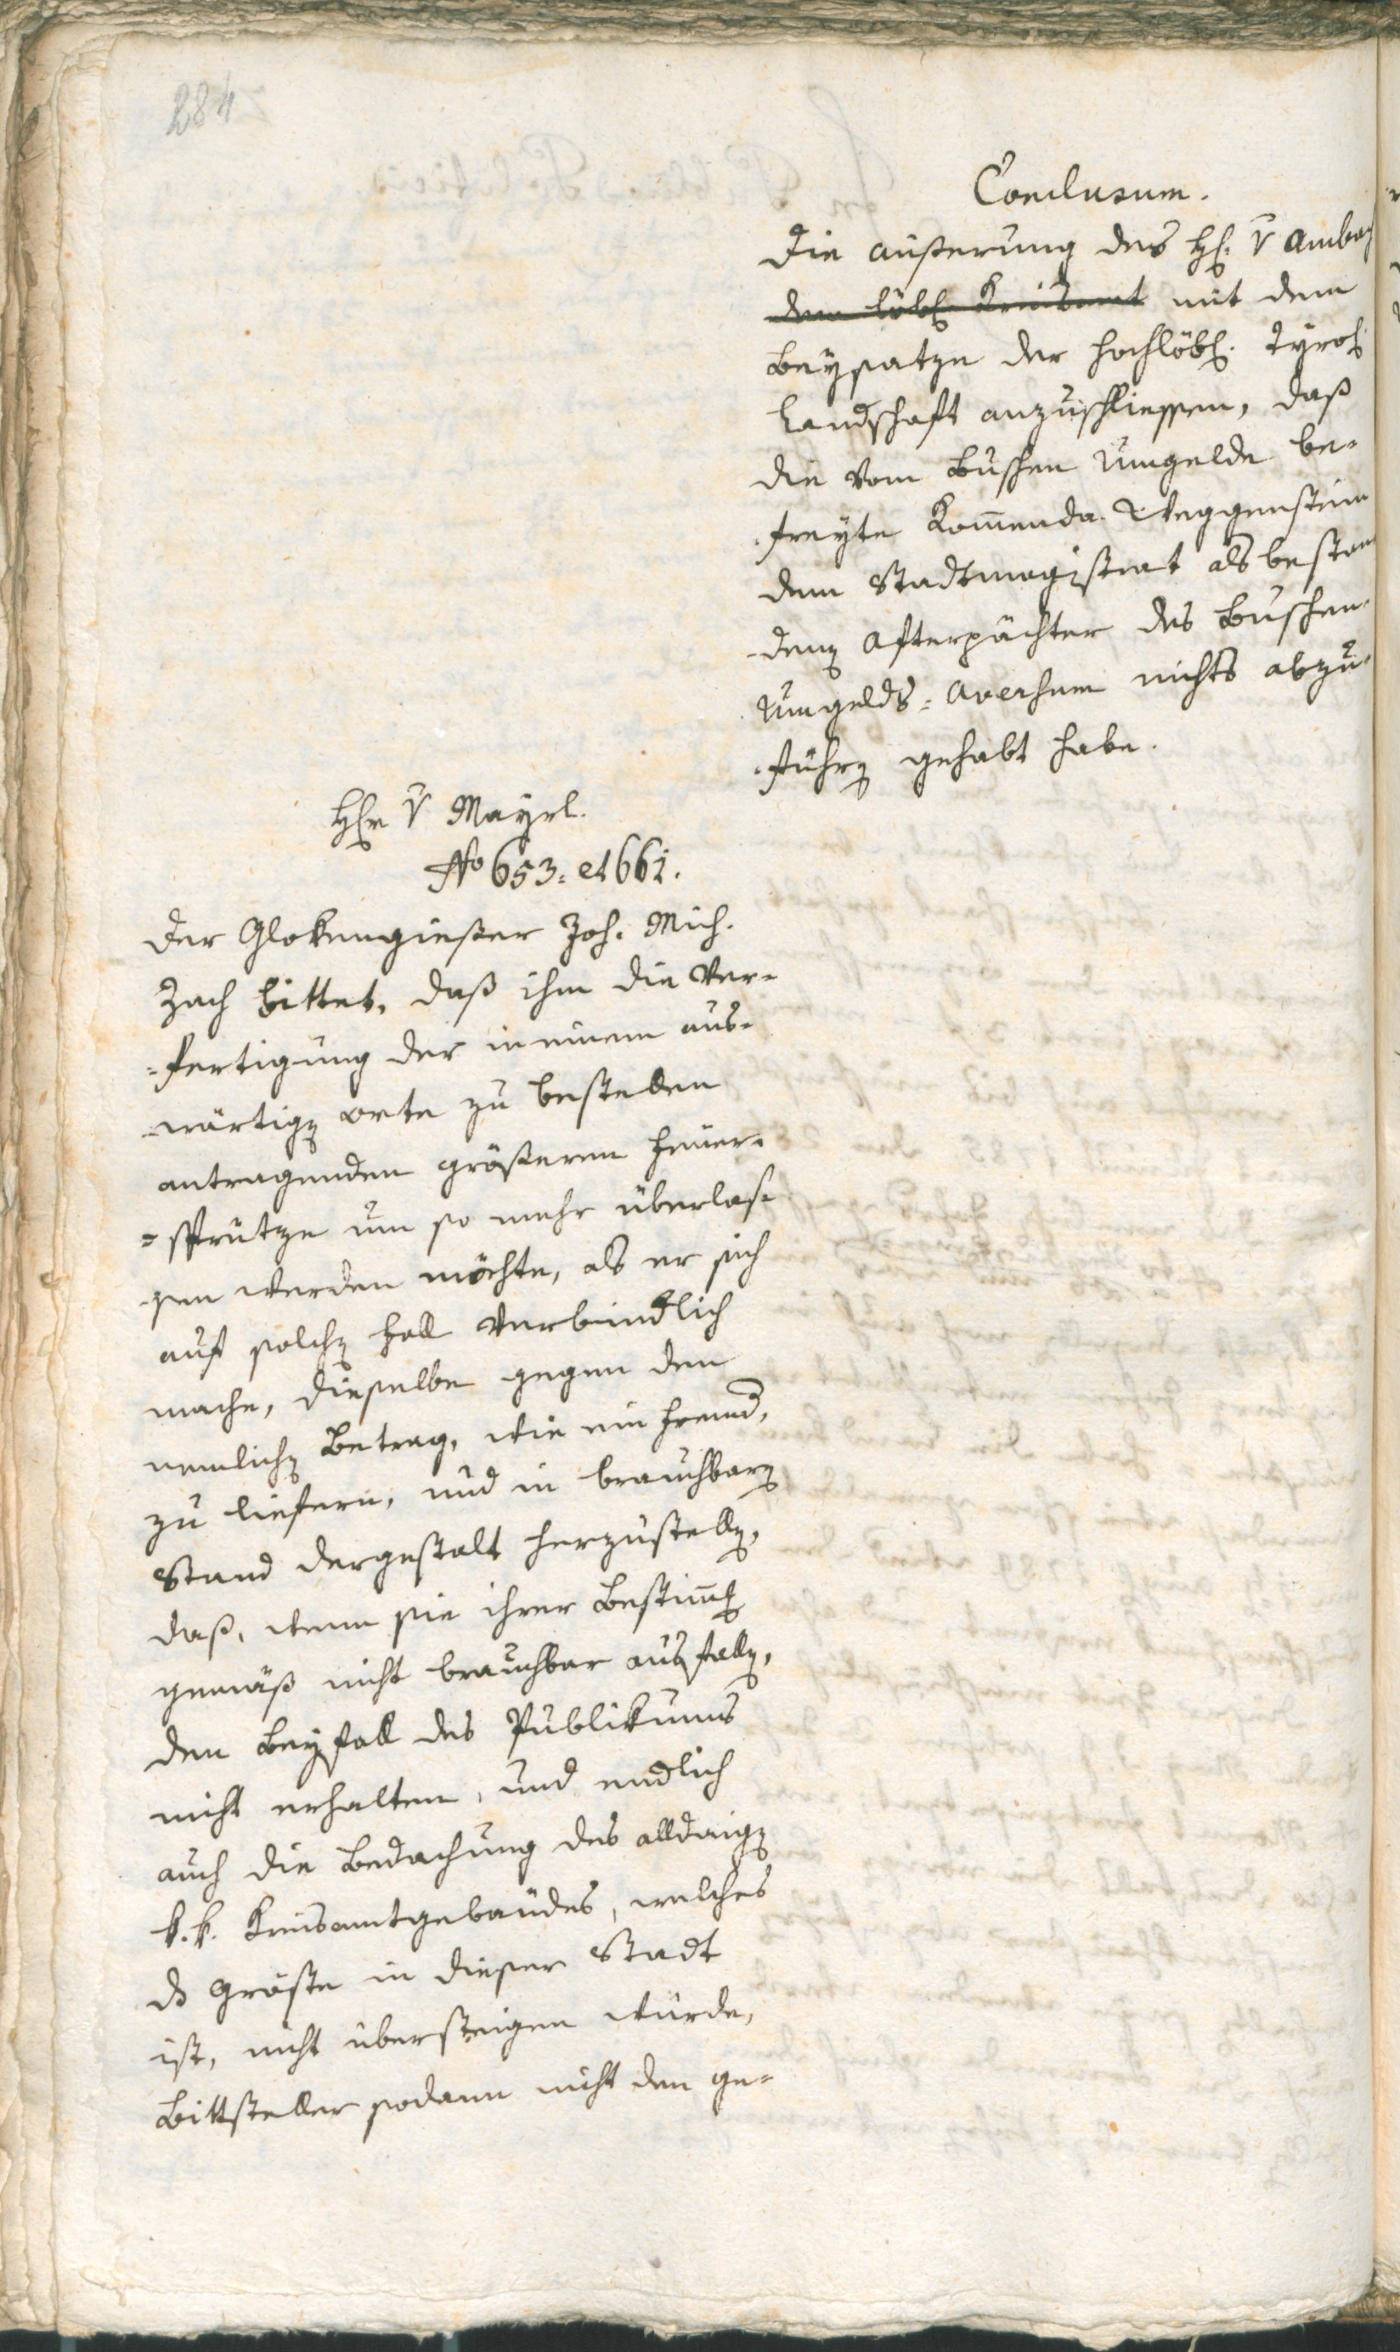 284
Conclusum.
Die äußerung des H: v Ambach
dem löbl Kreisamt mit dem
Beysatze der hochlöbl. Tyrol
Landschaft anzuschliessen, daß
die vom Buschen Umgelde be-
freyte Kom̄enda Weggenstein
dem Stadtmagistrat als bestan
den Afterpächter des Buschen-
Umgelds-Aversum nichts abzu-
führen gehabt habe.
Hr v Mayrl.
No 653. et 661.
Der Glokengießer Joh. Mich.
Zach bittet, daß ihm die Ver-
fertigung der in einem aus-
wärtigen Orte zu bestellen
antragenden größeren Feuer-
sprütze um so mehr überlas-
sen werden möchte, als er sich
auf solchen Fall verbindlich
mache, dieselbe gegen den
nemlichen Betrag, wie ein Fremd,
zu liefern, und in brauchbaren
Stand dergestalt herzustellen,
daß, wenn sie ihrer Bestim̄ung
gemäß nicht brauchbar ausfallen,
den Beyfall des Publikums
nicht erhalten, und endlich
auch die Bedachung des alldaigen
k. k. Kreisamtgebäudes, welches
ds größte in dieser Stadt
ist, nicht übersteigen würde,
Bittsteller sodann nicht den ge-